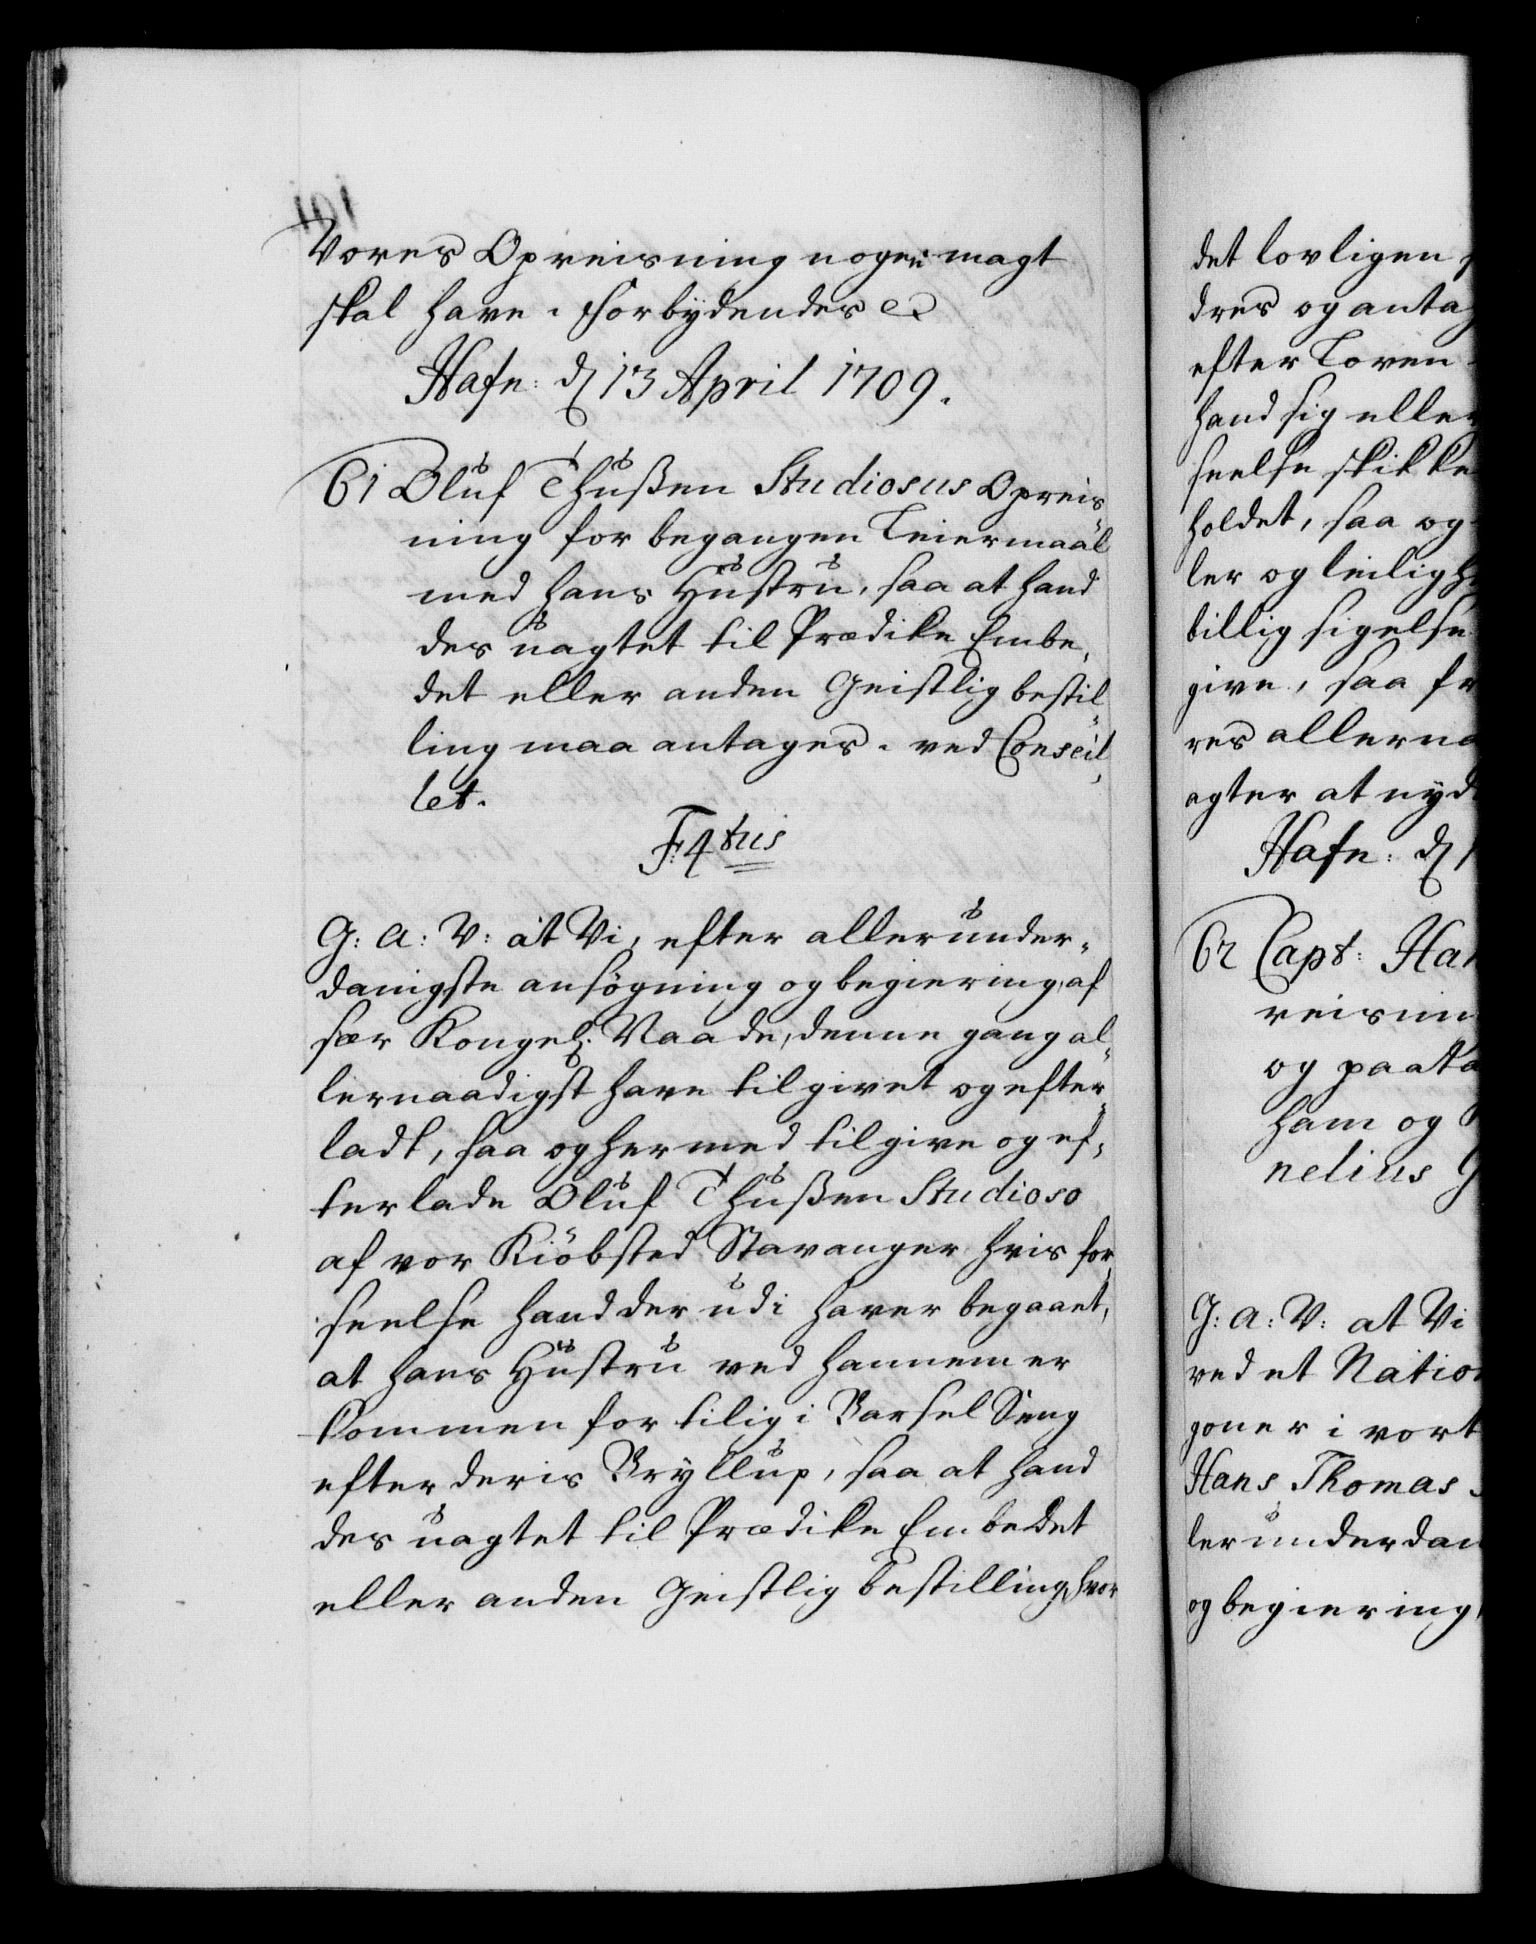 Vores Opreisning nogen magt
skal have. Forbydendes &c
Hafn: d 13 April 1709.
61 Oluf Thußen Studiosus Opreis„
ning for begangen Leiermaal
med hans Hustru, saa at hand
des uagtet til Prædike Embe„
det eller anden Geistlig bestil„
ling maa antages. ved Conseil„
let.
F: 4tus
G: A: V: at Vi, efter allerunder„
danigste ansøgning og begiering, af
sær Kongel: Naade, denne gang al„
lernaadigst have tilgivet og efter„
ladt, saa og hermed tilgive og ef„
terlade Oluf Thußen Studioso
af vor Kiöbsted Stavanger hvis for„
seelse hand der udi haver begaaet,
at hans Hustru ved hannem er
kommen for tilig i Barsel Seng
efter deris Bryllup, saa at hand
des uagtet til Prædike Embedet
eller anden Geistlig bestilling, hvor
det lovligen
dres og antag
efter Loven
hand sig eller
seelse skikke
holdet, saa og
ler og leiligh
billig sigelse
give, saa fr
res allerna
agter at nyd
Hafn: d 1
62 Capt: Han
reisnin
og paata
ham og
nelius G
G: A: V: at Vi
ved et Nation
goner i vort
Hans Thomas
lerunderdan
og begiering,